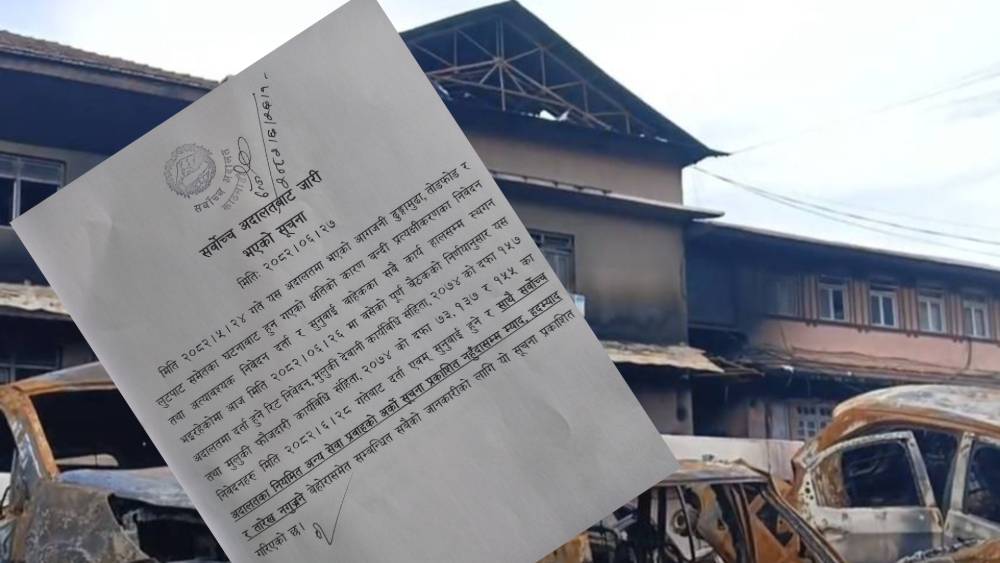 सर्वोच्च अदालत
सर्वोच्च अदालतबाट जारी
भएको सूचना
मितिः २०८२।०६।२७
मिति २०८२।५।२४ गते यस अदालतमा भएको आगजनी ढुङ्गामुढा, तोडफोड र
लुटपाट समेतका घटनाबाट हुन गएको क्षतिको कारण बन्दी प्रत्यक्षीकरणका निवेदन
तथा अत्यावश्यक निवेदन दर्ता र सुनुवाई बाहेकका सबै कार्य हालसम्म स्थगन
भइरहेकोमा आज मिति २०८२।०६।२६ मा बसेको पूर्ण बैठकको निर्णयानुसार यस
अदालतमा दर्ता हुने रिट निवेदन, मुलुकी देवानी कार्यविधि संहिता, २०७४ को दफा १५७
तथा मुलुकी फौजदारी कार्यविधि संहिता, २०७४ को दफा ७३, १३७ र १५५ का
निवेदनहरु मिति २०८२।६।२८ गतेबाट दर्ता एवम् सुनुवाई हुने र साथै सर्वोच्च
अदालतका नियमित अन्य सेवा प्रवाहको अर्को सूचना प्रकाशित नहुँदासम्म म्याद, हदम्याद
र तारेख नगुज्रने बेहोरासमेत सम्बन्धित सबैको जानकारीको लागि यो सूचना प्रकाशित
गरिएको छ।